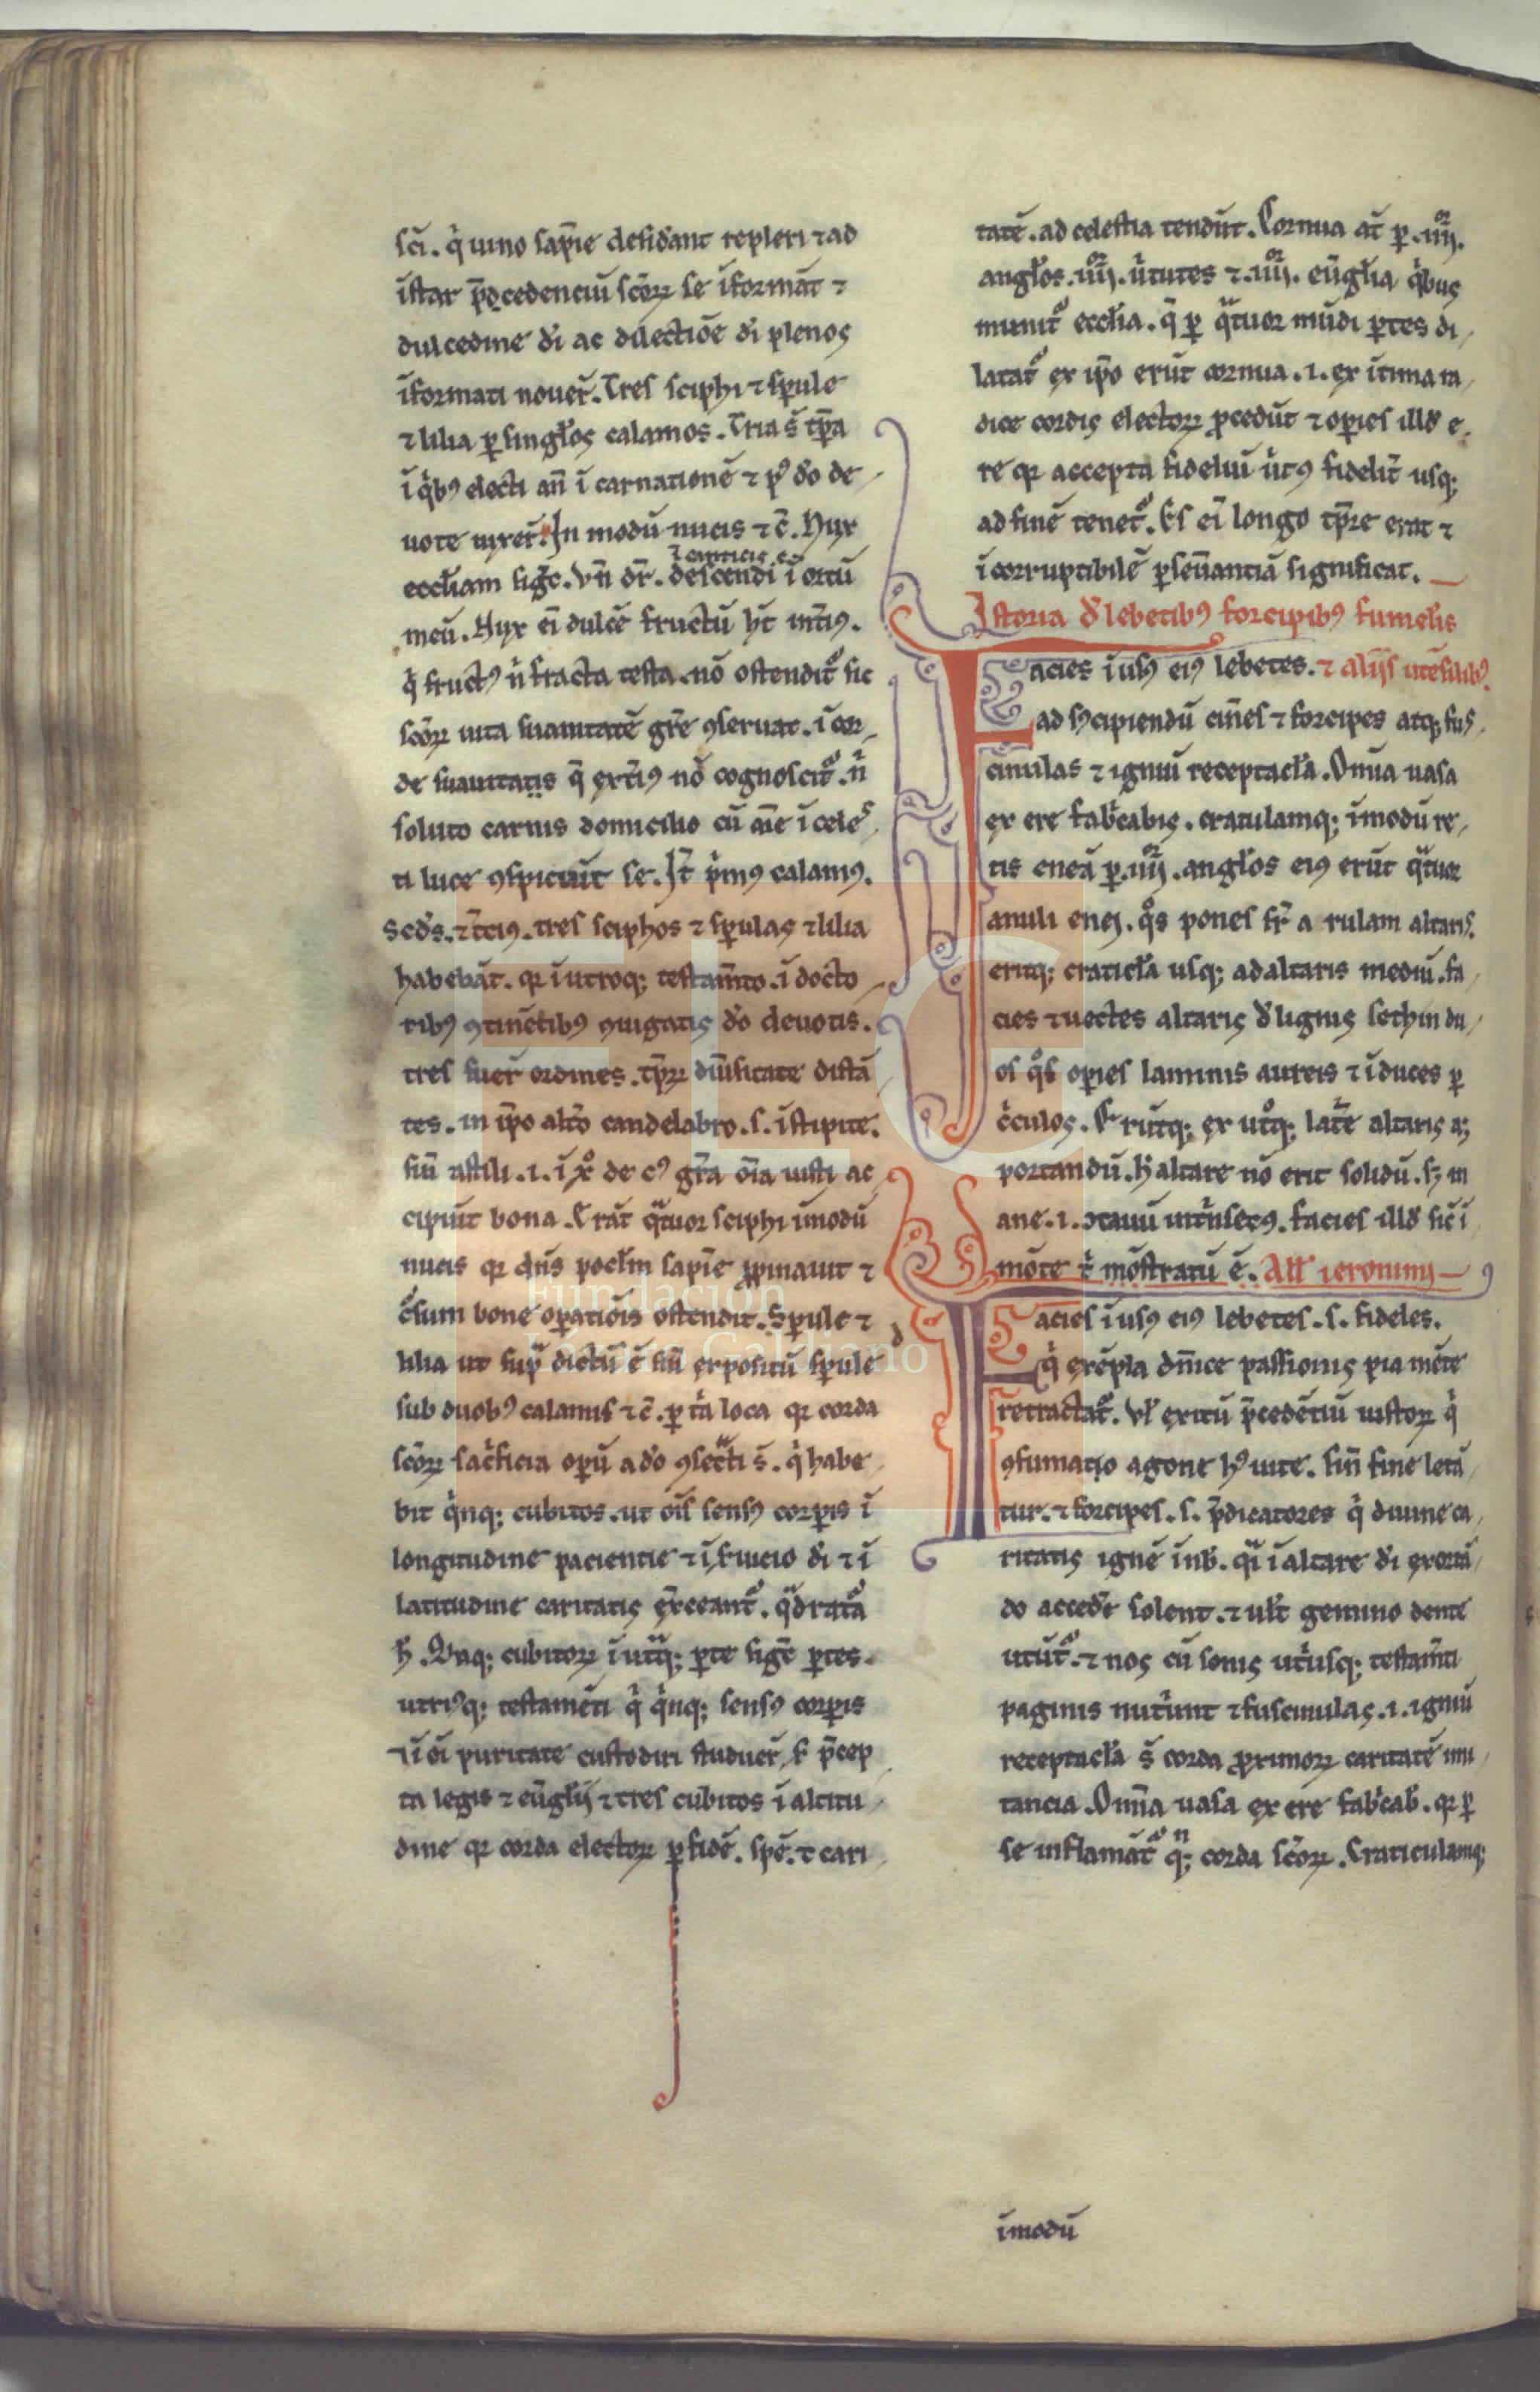 sci. q̇ uino sapīe desid'ant repleri ⁊ ad
īstar p̄cedenciū scōꝝ se īformāt ⁊
dulcedine d̄i ac dilectiōe d̄i plenos
īformati nouer̄. Tres sciphi ⁊ sp̄ule
⁊ lilia ꝑ singl'os calamos. Tria s̄ tp̄a
ī q̇bꝰ electi an̄ ī carnationē ⁊ pꝰ d'o de
uote uixer̄. In modū nucis ⁊ c̄. Nux
ī canticis
eccl'iam siḡt. vn̄ dr̄. descendi ī ortū
meū. Nux ei dulcē fructū ht̄ int̄iꝰ.
q̇ fructꝰ n̄ fracta testa nō ostendit᷑ sic
scōꝝ uita suauitatē gr̄e ꝯseruat. ī cor
de suauitatis q̄ ext̄iꝰ nō cognoscit᷑. n̄
soluto carnis domicilio cū aīe ī celes
ti luce ꝯspiciūt se. It̄ ṗmꝰ calamꝰ.
Sc'ds. ⁊ t̄ciꝰ. tres sciphos ⁊ sp̄ulas ⁊ lilia
habebāt. qꝛ ī utroqꝫ testam̄to. ī docto
ribꝰ ꝯtinētibꝰ ꝯiugatis d'o deuotis.
tres fuer̄ ordines. tp̄ꝝ diūsitate distā
tes. in ip̄o alto candelabro. s. ī stipite.
siū astili. i. ī xp̄o de cꝰ gr̄a oīa iusti ac
cipiūt bona. Erāt q̈tuor sciphi īmodū
nucis qꝛ dn̄s pocl'm sapīe ꝓpinauit ⁊
c̄sum bone oꝑatiōis ostendit. Sp̄ule ⁊
lilia ut sup̄ dictū ē siū expositū sp̄ule
sub duobꝰ calamis ⁊ c̄. ꝑ t̄a loca qꝛ corda
scōꝝ sac̓ficia oꝑū a d'o ꝯsec̄ti s̄. q̇ habe
bit q̇nqꝫ cubitos. ut oīs sensꝰ corꝑis ī
longitudine paciencie ⁊ ī s̄uicio d̄i ⁊ ī
latitudine caritatis ex̄ceant᷑. q̈drata
ħ. v̄nqꝫ cubitoꝝ ī utqꝫ ꝑte sig̅t ꝑtes
utriꝰqꝫ testamēti q̇ q̇nqꝫ sensꝰ corꝑis
ī ōi puritate custodiri studuer̄. s̄ p̄cep
ta legis ⁊ eūgl'ij ⁊ tres cubitos ī altitu
dine qꝛ corda electoꝝ ꝑ fidē. spē. ⁊ cari
tatē. ad celestia tendūt. Cornua at̄ ꝑ .iiij.
angl'os .iiij. ūtutes ⁊ .iiij. eūgl'ia q̇bus
munit᷑ eccl'ia. q̄ ꝑ q̈tuor mūdi ꝑtes di
latat᷑ ex ip̄o erūt cornua. i. ex ītima ra
dice cordis electoꝝ ꝓcedūt ⁊ oꝑies illd' e
re qꝛ accepta fideliū ūtꝰ fidelit̄ usqꝫ
ad finē tenet᷑. Es ei longo tp̄re erat ⁊
ī corruptibilē ꝑseūantiā significat.
Istoria d' lebetibꝰ forcipibꝰ fumelis
Facies ī usꝰ eiꝰ lebetes. ⁊ alijs utēsilibꝰ.
ad s̄cipiendū cin̄es ⁊ forcipes atqꝫ fus
cinulas ⁊ igniū receptacl'a. Omīa uasa
ex ere fabʼcabis. craticulamqꝫ īmodū re
tis eneā ꝑ .iiij. angl'os eiꝰ erūt q̈tuor
anuli enei. q̊s pones s̄t a rulam altaris.
eritqꝫ craticl'a usqꝫ ad altaris mediū. fa
cies ⁊ uectes altaris d' lignis sethin du
os q̊s oꝑies laminis aureis ⁊ īduces ꝑ
c̓culos. Erūtqꝫ ex ut̊qꝫ lat̄e altaris ad
portandū. ħ altare nō erit solidū. sꝫ in
ane. i. cauū int̓nsecꝰ. facies illd' sic̄ ī
mōte t̄ mōstratū ē. All' ieronimꝰ
Facies ī usꝰ eiꝰ lebetes. s. fideles.
q̇ exēpla dn̄ice passionis pia mēte
retractat᷑. vl' exitū p̄cedētiū iustoꝝ q̇
ꝯsumato agone hꝰ uite. sin̄ fine letā
tur. ⁊ forcipes. s. p̄dicatores q̇ diuine ca
ritatis ignē īub'. q̈ ī altare d̄i exortā
do accedē solent. ⁊ ul't gemino dente
utūt᷑. ⁊ nos cū sonis ut̓usqꝫ testam̄ti
paginis nut̓unt ⁊ fuscinulas. i. igniū
receptacl'a s̄ corda ꝓximoꝝ caritatē imi
tancia. Omīa uasa ex ere fab'cab'. qꝛ ꝑ
se inflamāt᷑ qꝫ corda scōꝝ. Craticulamqꝫ
īmodū
Fundación
Lázaro Galdiano